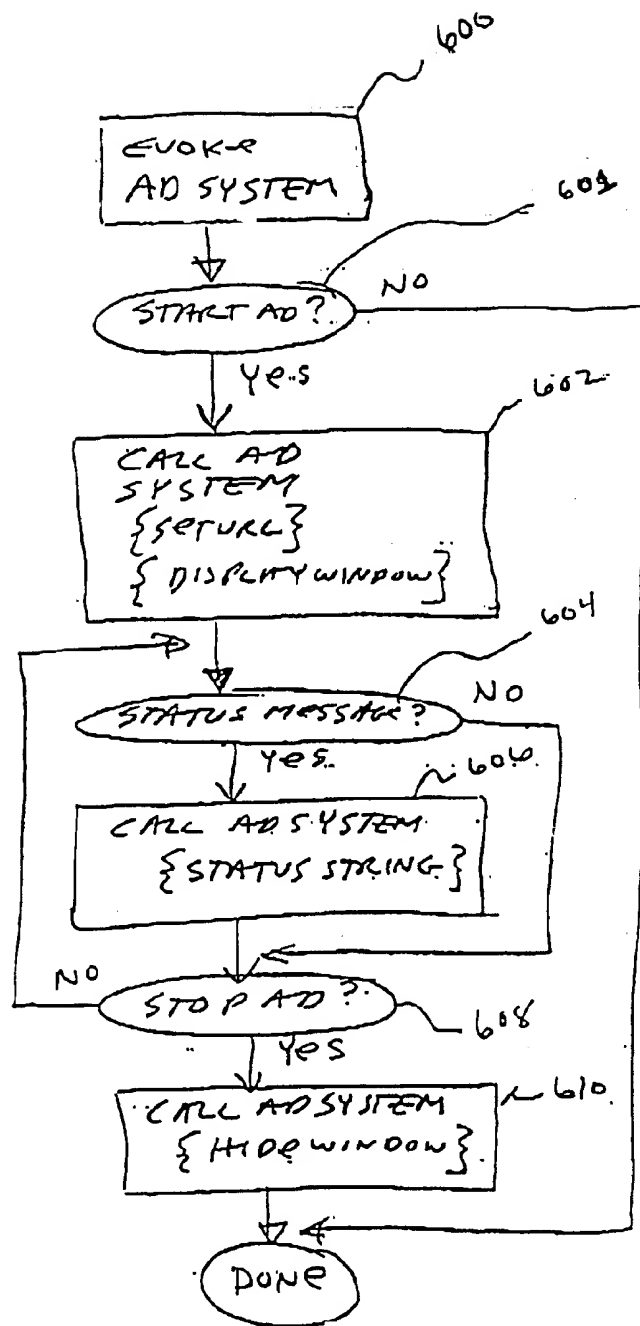 600
EVOKE
AD SYSTEM
601
START AD?
NO
Yes
602
CALL AD
SYSTEM
{SETURL}
{DISPLAYWINDOW}
604
STATUS MESSAGE?
NO
Yes
606
CALL ADSYSTEM
{STATUS STRING}
NO
STOP AD?
608
Yes
610
CALL ADSYSTEM
{HIDEWINDOW}
DONE